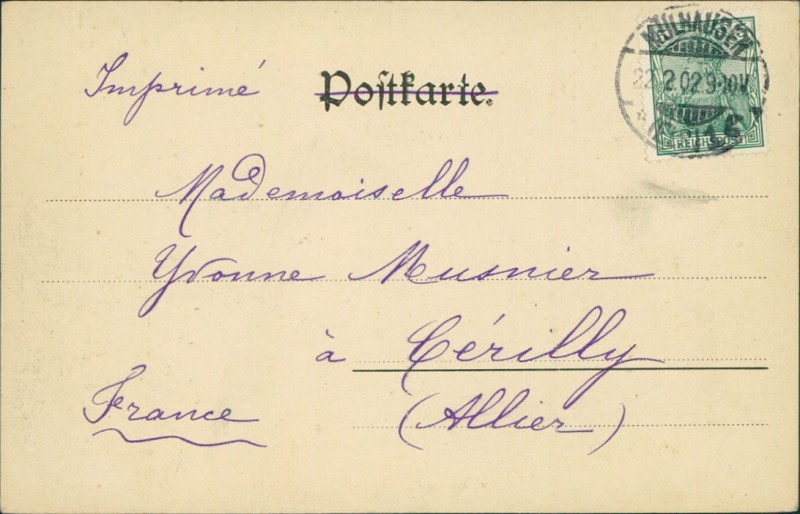 MÜLHAUSEN
22.2.02.9-10V
REICHSPOST
Imprimé Postkarte.
Mademoiselle
Yvonne Musnier
à Cérilly
France (Allier)